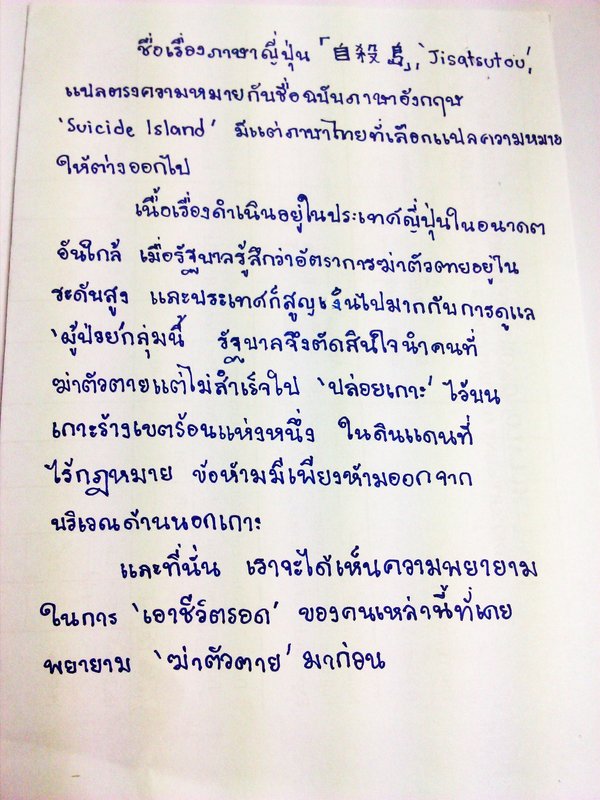 ชื่อเรื่องภาษาญี่ปุ่น「自殺島」,'Jisatsutou',
แปลตรงความหมายกับชื่อฉบับภาษาอังกฤษ
'Suicide Island' มีแต่ภาษาไทยที่เลือกแปลความหมาย
ให้ต่างออกไป
เนื้อเรื่องดำเนินอยู่ในประเทศญี่ปุ่นในอนาคต
อันใกล้ เมื่อรัฐบาลรู้สึกว่าอัตราการฆ่าตัวตายอยู่ใน
ระดับสูง และประเทศก็สูญเงินไปมากกับการดูแล
'ผู้ป่วย'กลุ่มนี้ รัฐบาลจึงตัดสินใจนำคนที่
ฆ่าตัวตายแต่ไม่สำเร็จไป 'ปล่อยเกาะ' ไว้บน
เกาะร้างเขตร้อนแห่งหนึ่ง ในดินแดนที่
ไร้กฎหมาย ข้อห้ามมีเพียงห้ามออกจาก
บริเวณด้านนอกเกาะ
และที่นั่น เราจะได้เห็นความพยายาม
ในการ 'เอาชีวิตรอด' ของคนเหล่านี้ที่เคย
พยายาม 'ฆ่าตัวตาย' มาก่อน